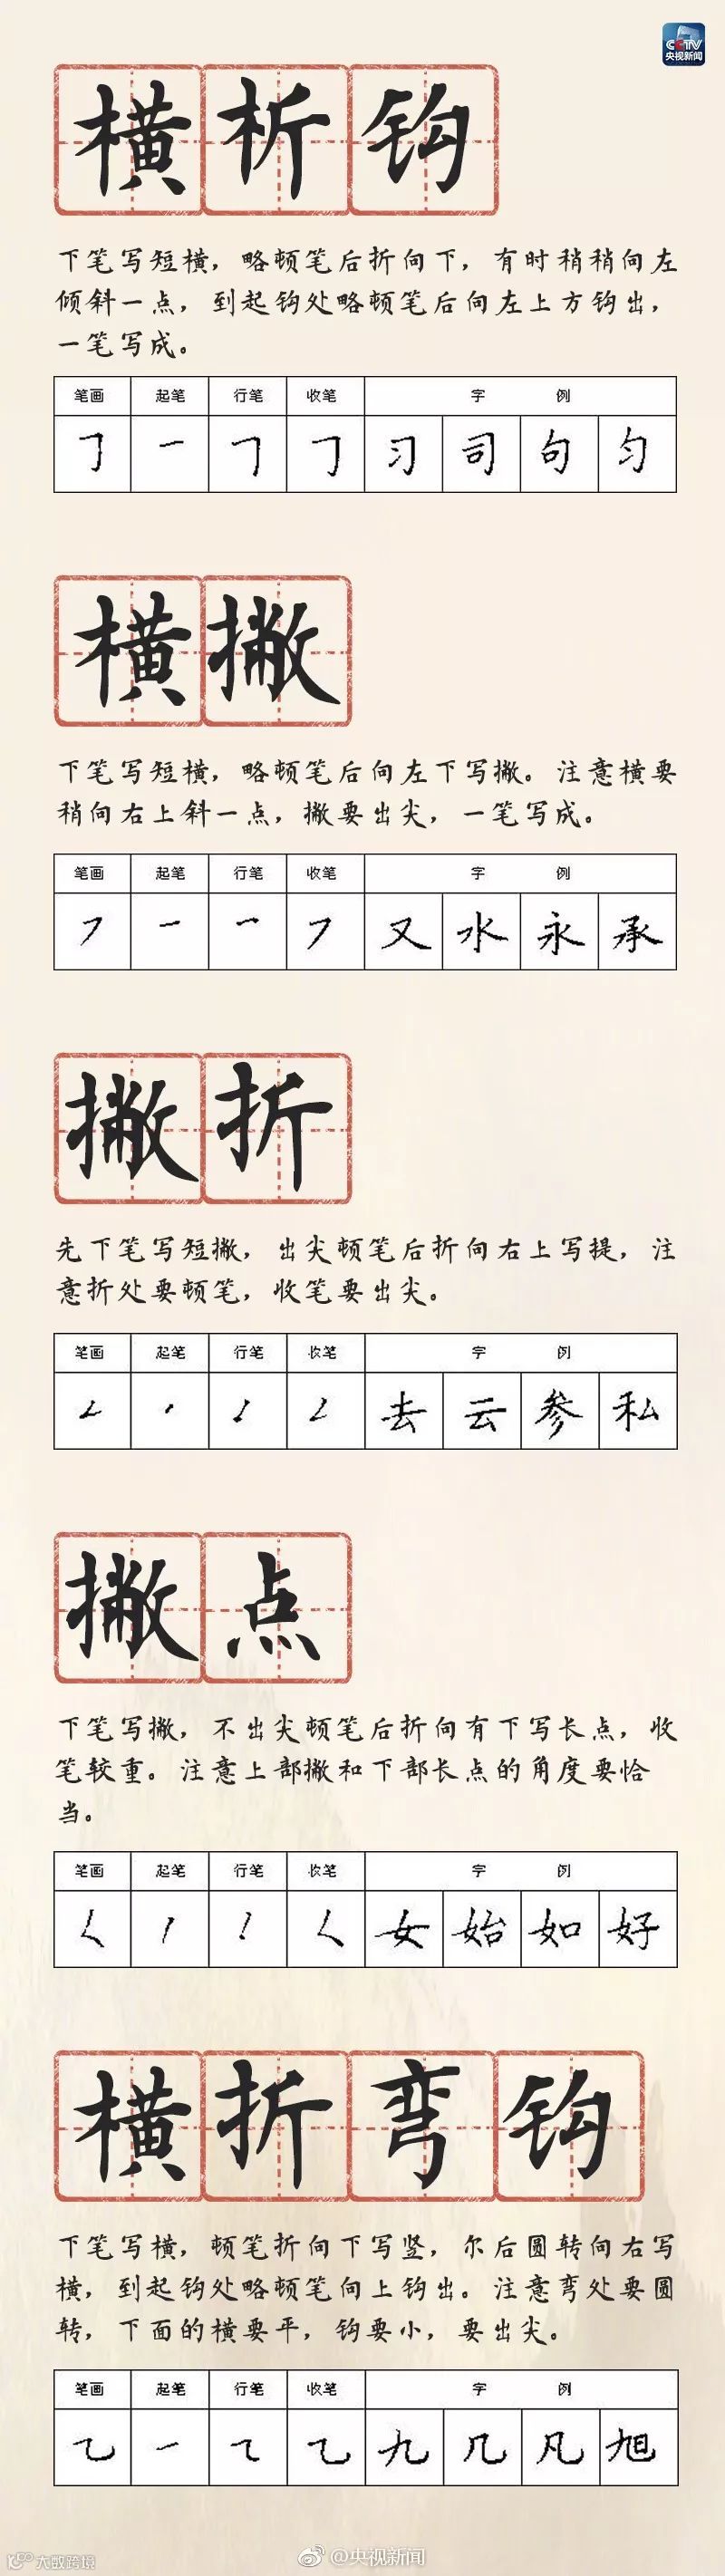 CCTV
央视新闻
横析钩
下笔写短横，略顿笔后折向下，有时稍稍向左
倾斜一点，到起钩处略顿笔后向左上方钩出，
一笔写成。
笔画 起笔 行笔 收笔 字 例
㇆ 一 ㇆ ㇆ 习 司 句 匀
横撇
下笔写短横，略顿笔后向左下写撇。注意横要
稍向右上斜一点，撇要出尖，一笔写成。
笔画 起笔 行笔 收笔 字 例
㇇ 一 ㇖ ㇇ 又 水 永 承
撇折
先下笔写短撇，出尖顿笔后折向右上写提，注
意折处要顿笔，收笔要出尖。
笔画 起笔 行笔 收笔 字 例
㇜ 丶 ㇓ ㇜ 去 云 参 私
撇点
下笔写撇，不出尖顿笔后折向有下写长点，收
笔较重。注意上部撇和下部长点的角度要恰
当。
笔画 起笔 行笔 收笔 字 例
㇛ 丿 ㇓ ㇛ 女 始 如 好
横折弯钩
下笔写横，顿笔折向下写竖，尔后圆转向右写
横，到起钩处略顿笔向上钩出。注意弯处要圆
转，下面的横要平，钩要小，要出尖。
笔画 起笔 行笔 收笔 字 例
㇈ 一 ㇍ ㇈ 九 几 凡 旭
大数跨境
@央视新闻